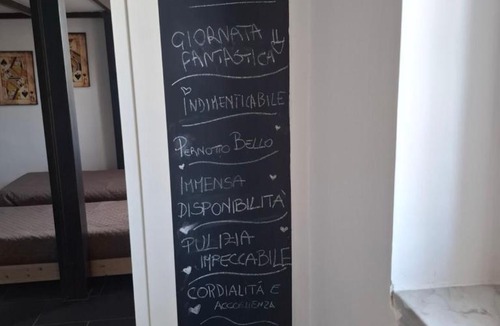 GIORNATA
FANTASTICA
INDIMENTICABILE
PERNOTTO BELLO
IMMENSA
DISPONIBILITÀ
PULIZIA
IMPECCABILE
CORDIALITÁ E
ACCOGLIENZA